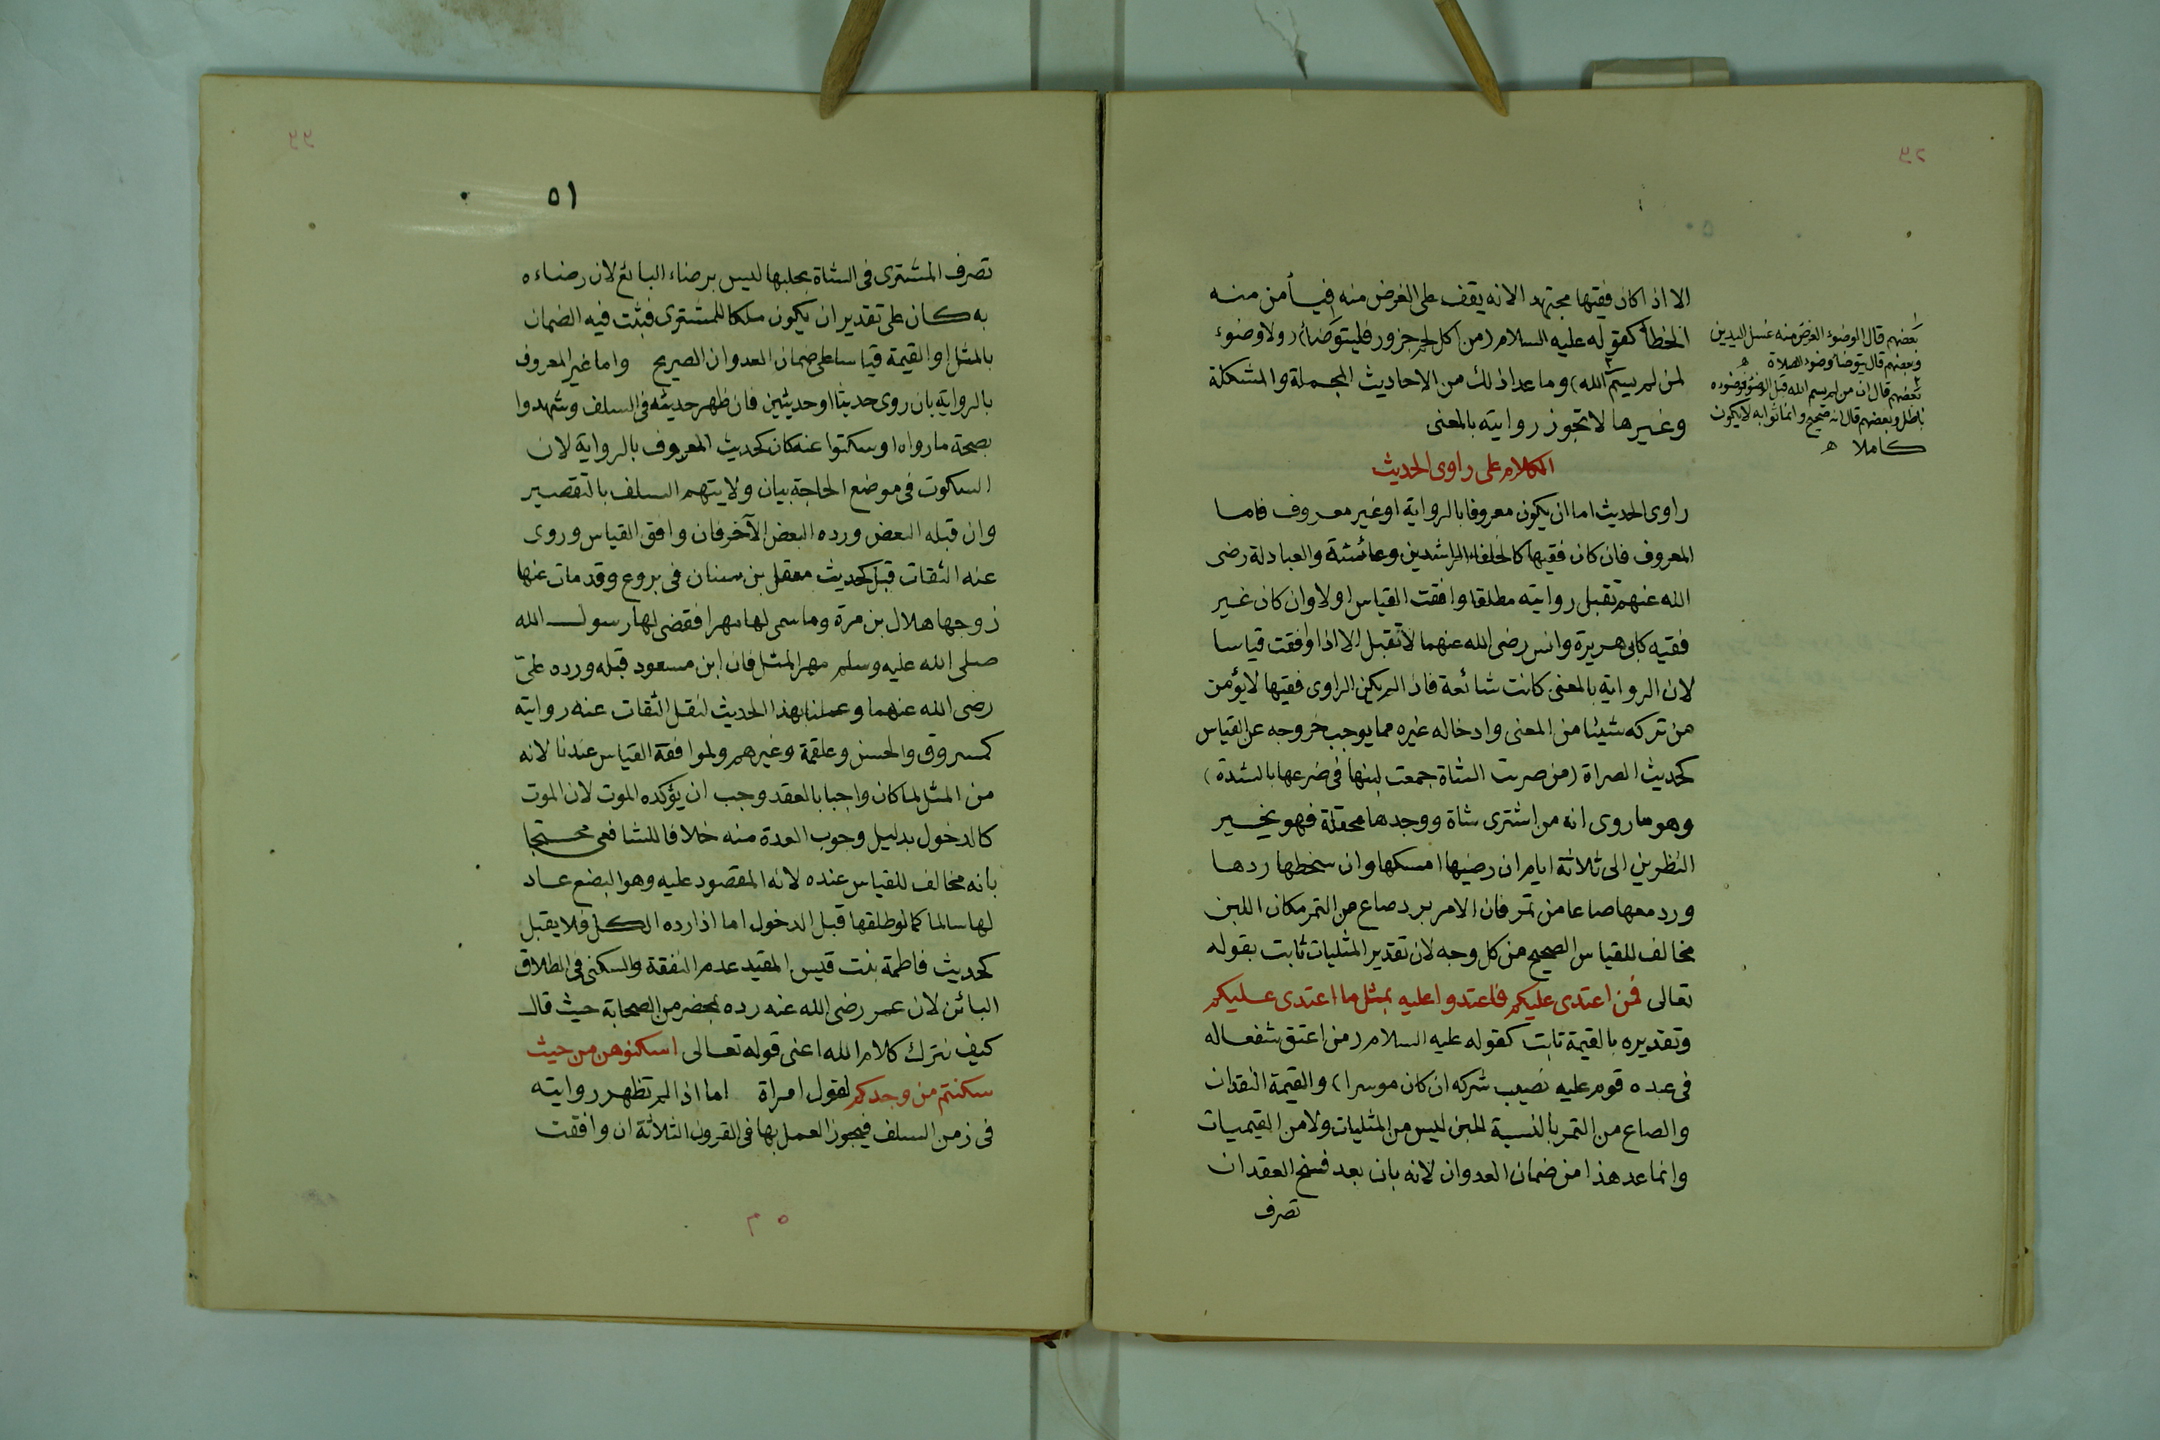 الا اذا كان فقيها مجتهدا لانه يقف على الغرض منه فيأمن منه
الخطأ كقوله عليه السلام (من اكل لحم جزور فليتوضأ) (ولا وضوء
لمن لم يسم الله) وما عدا ذلك من الاحاديث المجملة والمشكلة
وغيرها لا تجوز روايته بالمعنى
الكلام على راوى الحديث
راوى الحديث اما ان يكون معروفا بالرواية او غير معروف فاما
المعروف فان كان فقيها كالخلفاء الراشدين وعائشة والعبادلة رضى
الله عنهم تقبل روايته مطلقا وافقت القياس اولا وان كان غير
فقيه كابى هريرة وانس رضى الله عنهما لا تقبل الا اذا وافقت قياسا
لان الرواية بالمعنى كانت شائعة فاذا لم يكن الراوى فقيها لا يؤمن
من تركه شيئا من المعنى وادخاله غيره مما يوجب خروجه عن القياس
كحديث المصراة (من صريت الشاة جمعت لبنها فى ضرعها بالشدة)
وهو ما روى انه من اشترى شاة ووجدها محفلة فهو بخير
النظرين الى ثلاثة ايام ان رضيها امسكها وان سخطها ردها
ورد معها صاعا من تمر فان الامر برد صاع من التمر مكان اللبن
مخالف للقياس الصحيح من كل وجه لان تقدير المثليات ثابت بقوله
تعالى فمن اعتدى عليكم فاعتدوا عليه بمثل ما اعتدى عليكم
وتقديره بالقيمة ثابت كقوله عليه السلام (من اعتق شقصا له
فى عبده قوم عليه نصيب شركه ان كان موسرا) والقيمة النقدان
والصاع من التمر بالنسبة للبن ليس من المثليات ولا من القيميات
وانما عد هذا من ضمان العدوان لانه بان بعد فسخ العقد ان
تصرف
بعضهم قال الوضوء الغرض منه غسل اليدين
وبعضهم قال يتوضأ وضوء الصلاة ه
بعضهم قال ان من لم يسم الله قبل الوضوء فوضوءه
باطل وبعضهم قال انه صحيح وانما ثوابه لا يكون
كاملا ه
٥١
تصرف المشترى فى الشاة بحلبها ليس برضاء البائع لان رضاءه
به كان على تقدير ان يكون ملكا للمشترى فيثبت فيه الضمان
بالمثل او القيمة قياسا على ضمان العدوان الصريح واما غير المعروف
بالرواية بان روى حديثا او حديثين فان ظهر حديثه فى السلف وشهدوا
بصحة ما رواه او سكتوا عنه كان كحديث المعروف بالرواية لان
السكوت فى موضع الحاجة بيان ولا يتهم السلف بالتقصير
وان قبله البعض ورده البعض الآخر فان وافق القياس وروى
عنه الثقات قبل كحديث معقل بن سنان فى بروع وقد مات عنها
زوجها هلال بن مرة وما سمى لها مهرا فقضى لها رسول الله
صلى الله عليه وسلم مهر المثل فان ابن مسعود قبله ورده على
رضى الله عنهما وعملنا بهذا الحديث لنقل الثقات عنه روايته
كمسروق والحسن وعلقمة وغيرهم ولموافقة القياس عندنا لانه
من المثل لما كان واجبا بالعقد وجب ان يؤكده الموت لان الموت
كالدخول بدليل وجوب العدة منه خلافا للشافعى محتجا
بانه مخالف للقياس عنده لانه المقصود عليه وهو البضع عاد
لها سالما كما لو طلقها قبل الدخول اما اذا رده الكل فلا يقبل
كحديث فاطمة بنت قيس المقيد عدم النفقة والسكنى فى الطلاق
البائن لان عمر رضى الله عنه رده بمحضر من الصحابة حيث قال
كيف نترك كلام الله اعنى قوله تعالى اسكنوهن من حيث
سكنتم من وجدكم لقول امراة اما اذا لم تظهر روايته
فى زمن السلف فيجوز العمل بها فى القرون الثلاثة ان وافقت